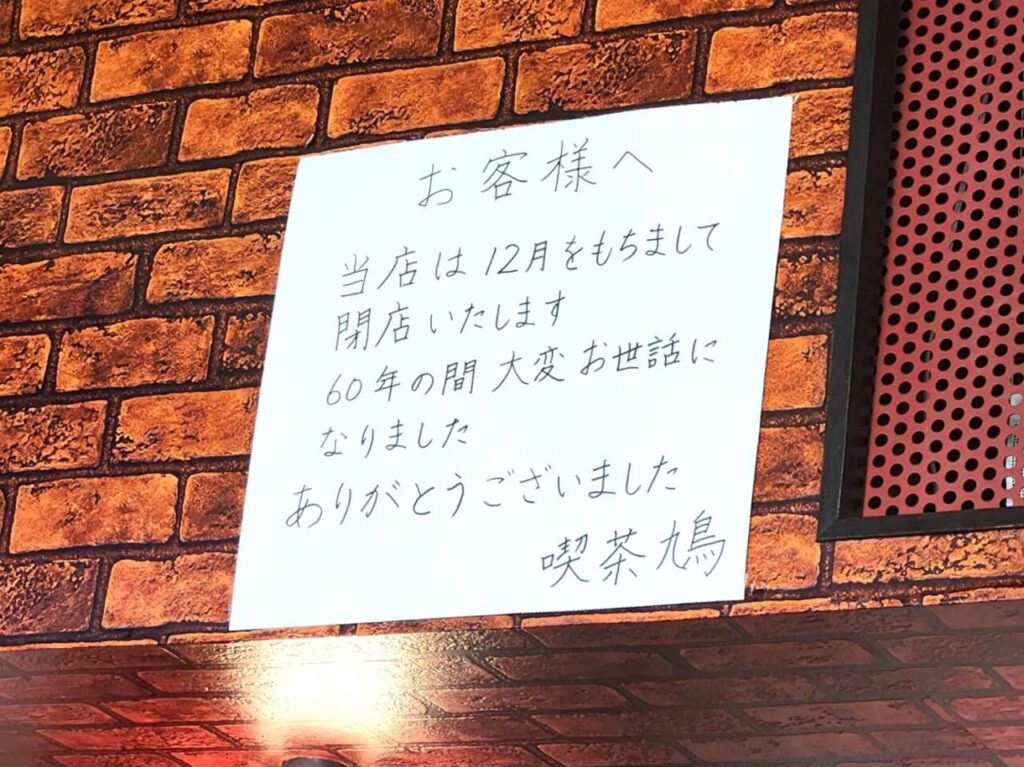 お客様へ
当店は12月をもちまして
閉店いたします
60年の間 大変お世話に
なりました
ありがとうございました
喫茶 鳩